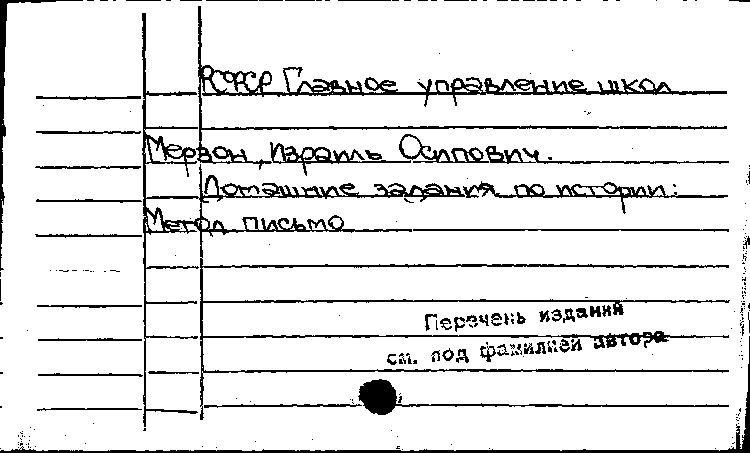 РСФСР Главное управление школ
Мерзон, Израиль Осипович.
Домашние задания по истории:
Метод письмо
Перечень изданий
см. под фамилией автора